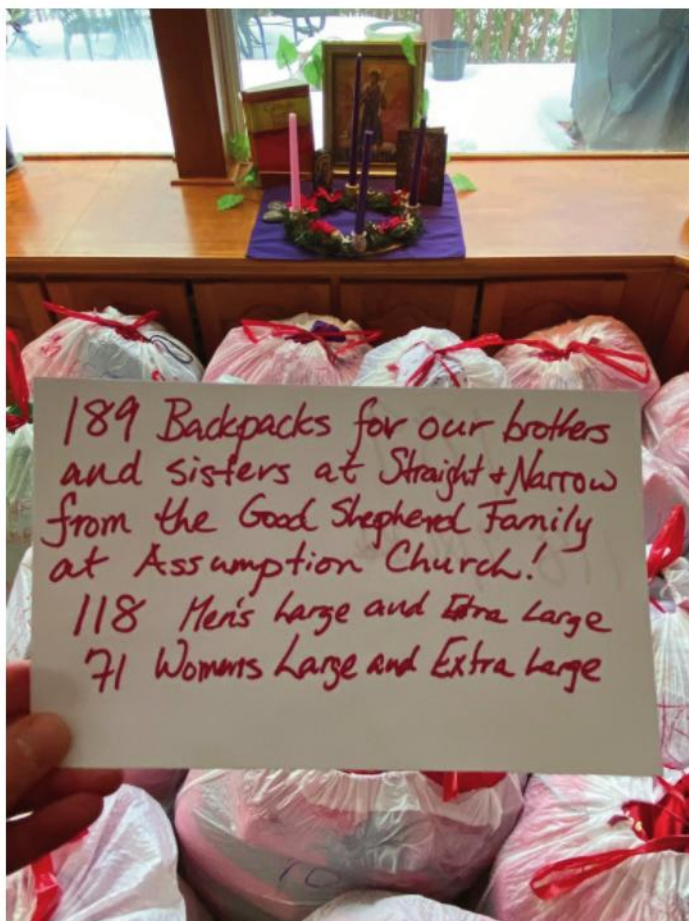 189 Backpacks for our brothers
and sisters at Straight + Narrow
from the Good Shepherd Family
at Assumption Church!
118 Men's Large and Extra Large
71 Womens Large and Extra Large
10